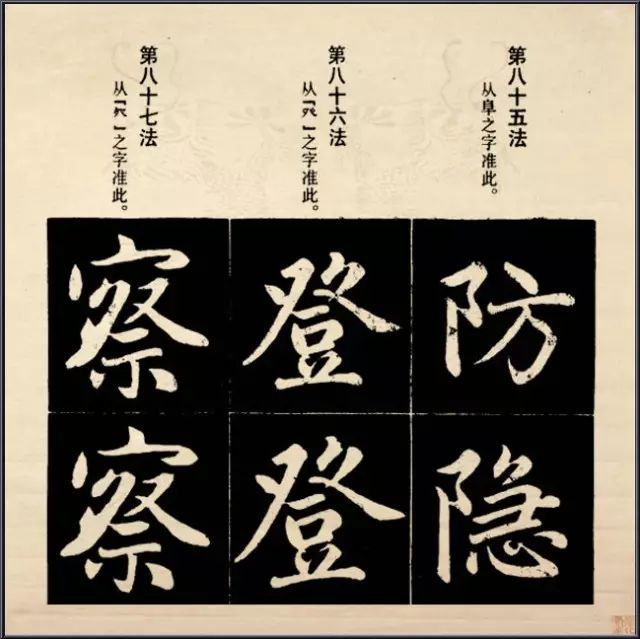 第八十五法
从阜之字准此。
防隐
第八十六法
从「癶」之字准此。
登登
第八十七法
从「」之字准此。
察察